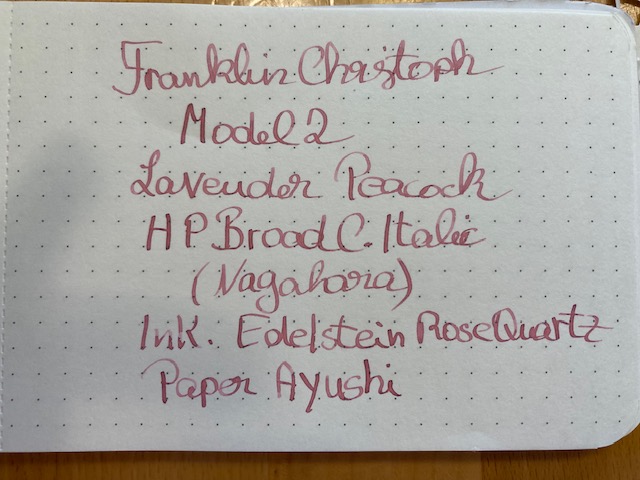 Franklin Chastoph
Model 2
Lavender Peacock
HP Broad C. Italic
(Nagahara)
Ink. Edelstein Rose Quartz
Paper Ayushi